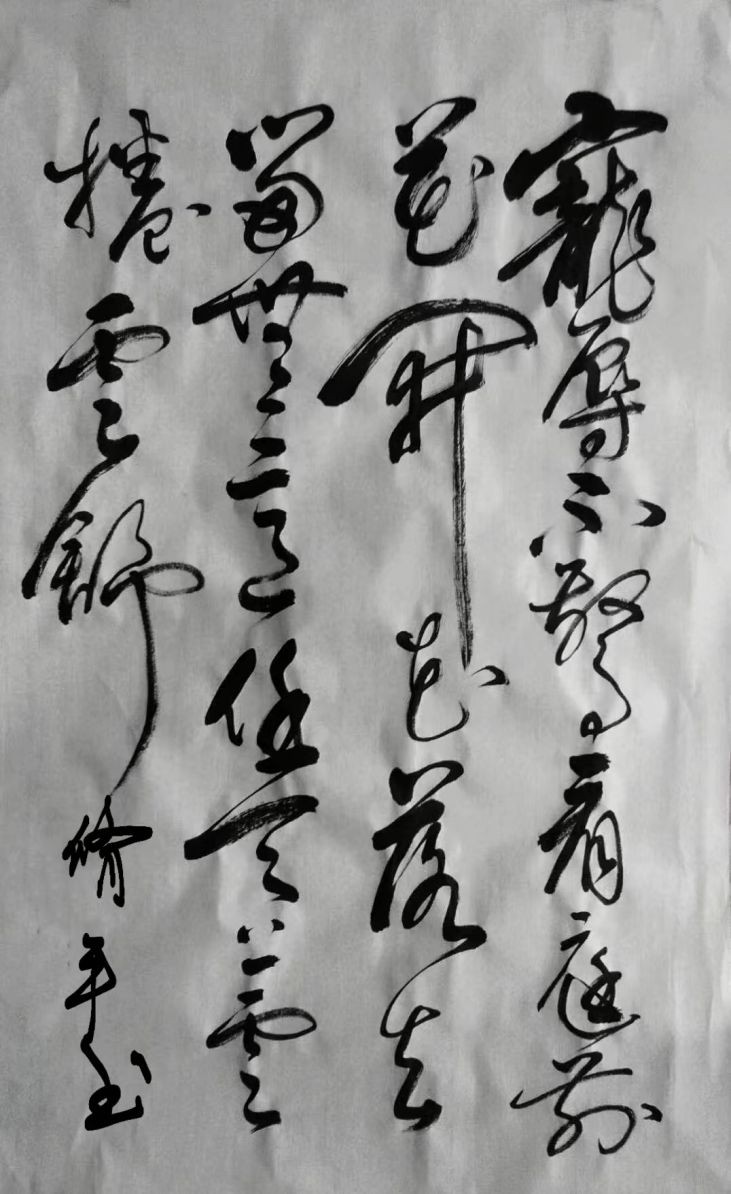 寵辱不驚看庭前
花開花落去
留無意任天上雲
捲雲舒